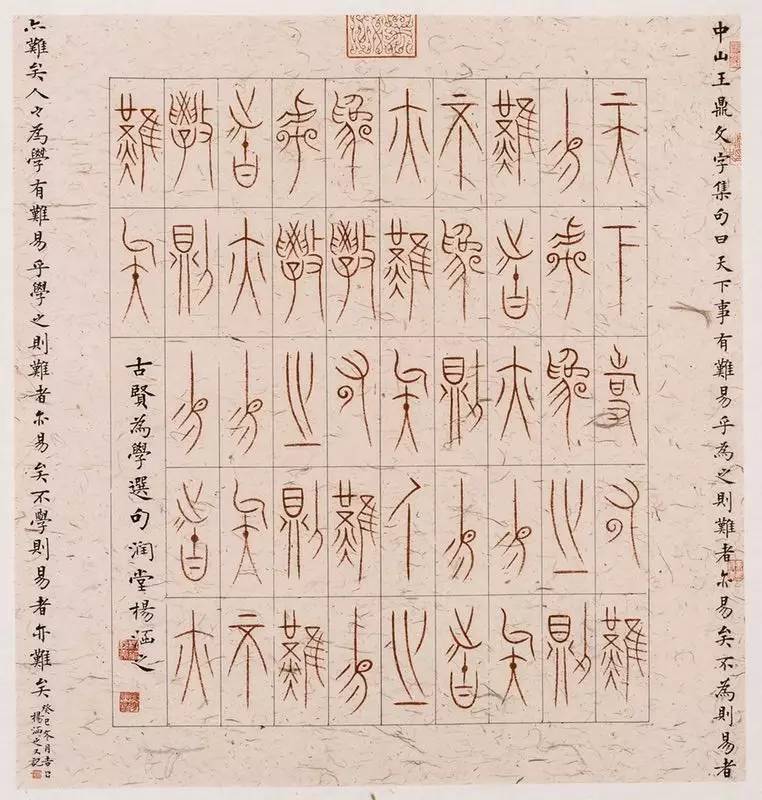 中山王鼎文字集句曰天下事有難易乎為之則難者亦易矣不為則易者
天下事有難
易乎為之則
難者亦易矣
不為則易者
亦難矣人之
為學有難易
乎學之則難
者亦易矣不
學則易者亦
難矣
古賢為學選句 潤堂楊涵之
亦難矣人之為學有難易乎學之則難者亦易矣不學則易者亦難矣
癸巳冬月吉日
楊涵之又記